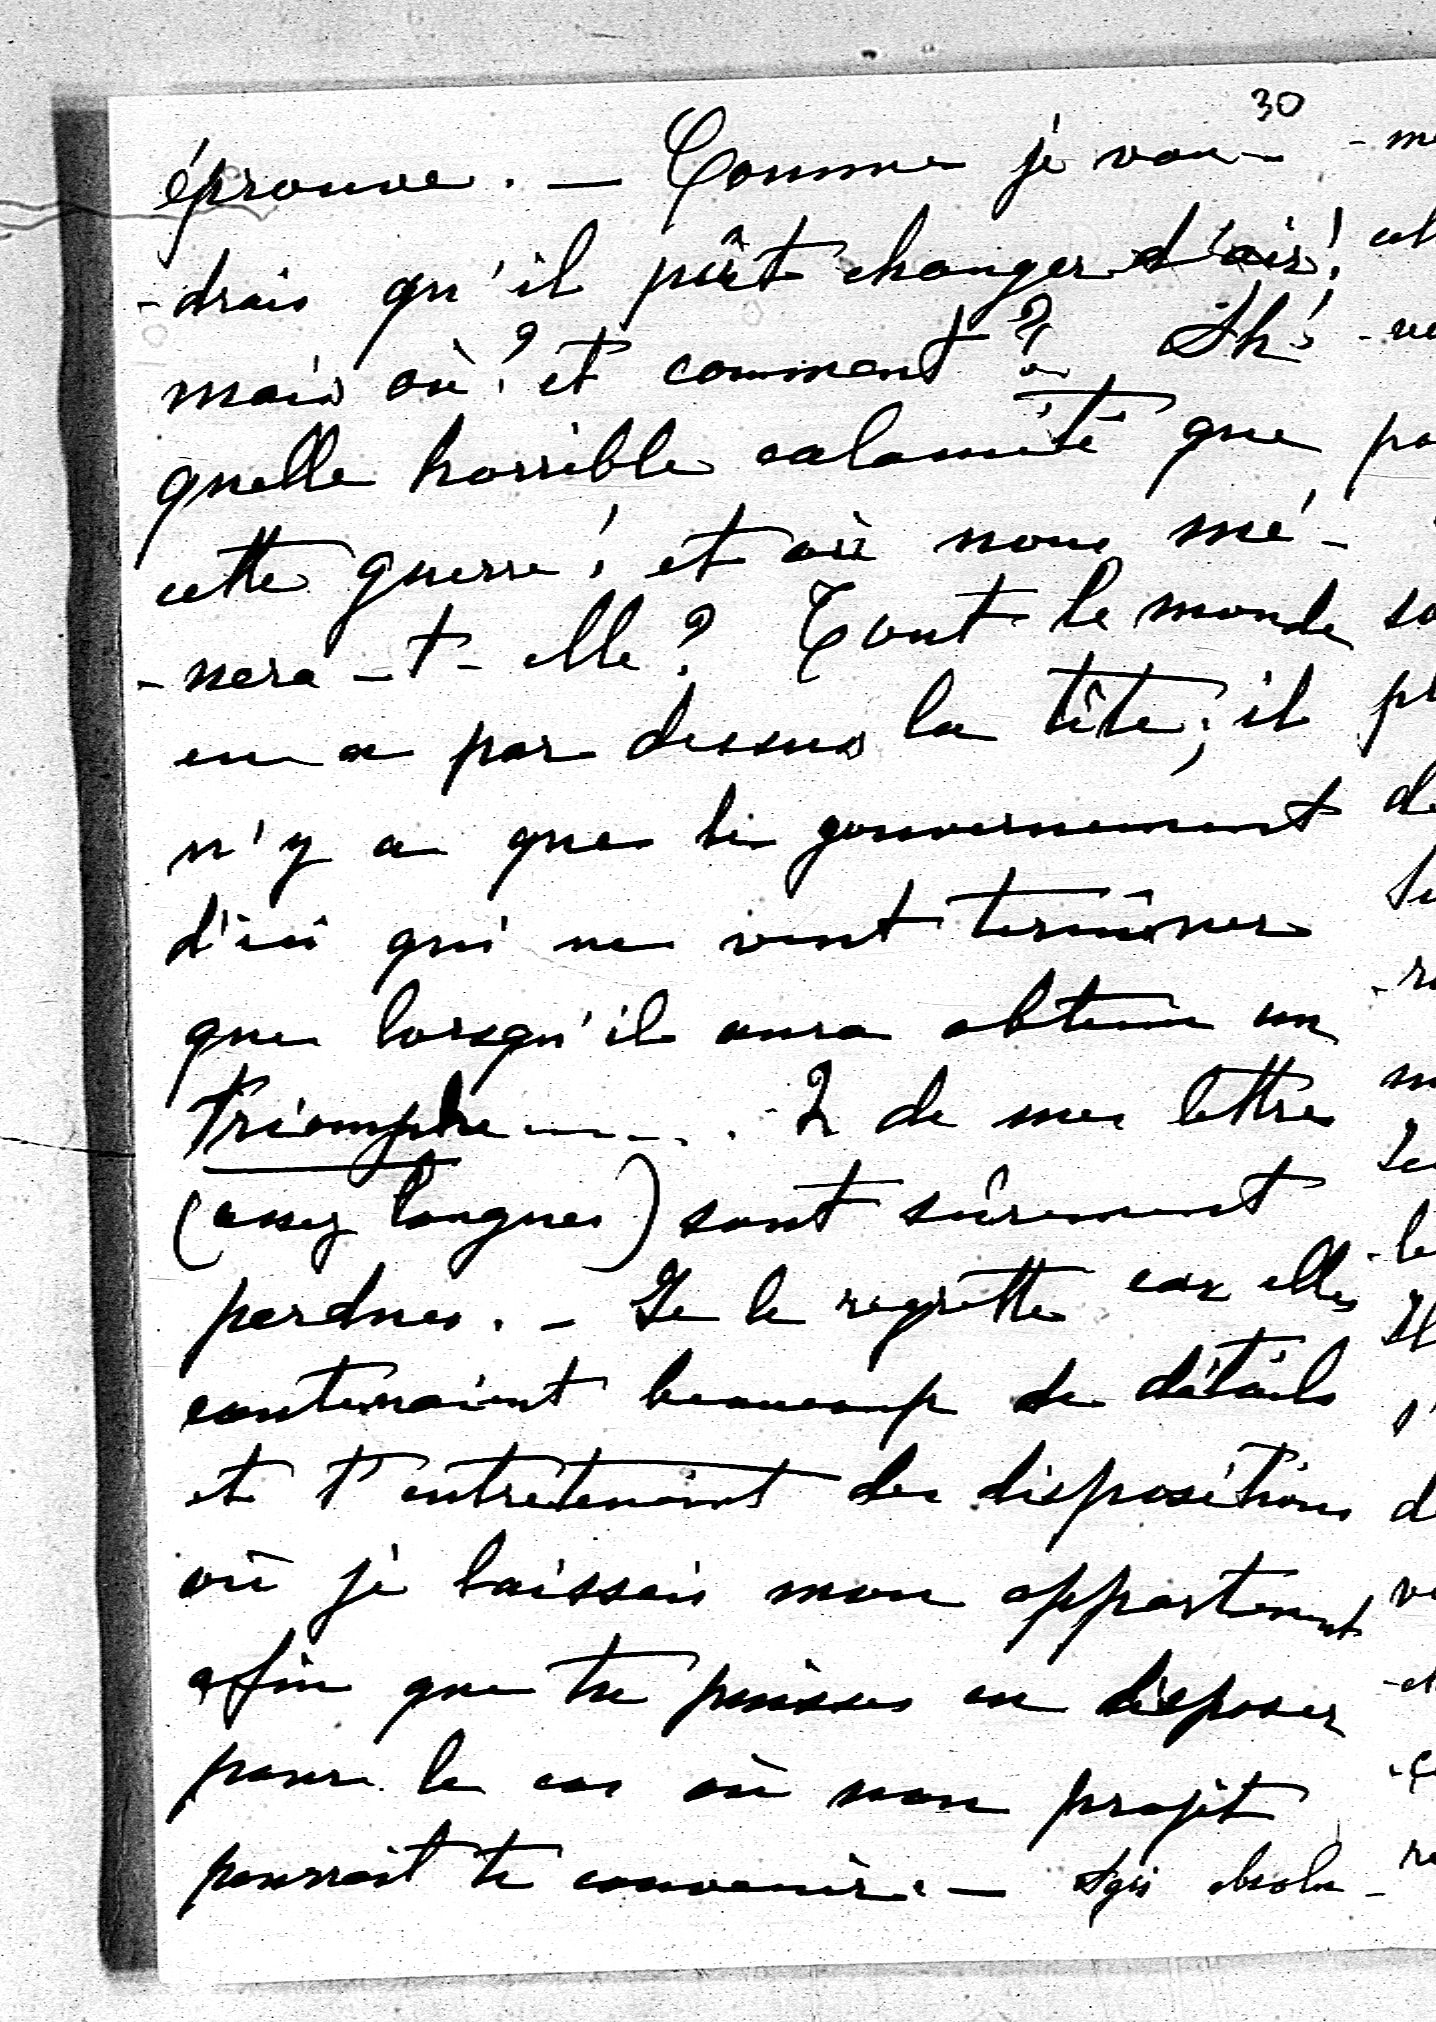 30
éprouve. — Comme je vou-
-drais qu'il pût changer d'air!
mais où? et comment? Ah!
quelle horrible calamité que
cette guerre! et où nous mè-
-nera-t-elle? Tout le monde
en a par dessus la tête; il
n'y a que le gouvernement
d'ici qui ne veut terminer
que lorsqu'il aura obtenu un
triomphe ...... 2 de mes lettres
(assez longues) sont sûrement
perdues. - Je le regrette car elles
contenaient beaucoup de détails
et t'entretenaient des dispositions
où je laissais mon appartement
afin que tu puisses en disposer
pour le cas où mon projet
pourrait te convenir. — Agis absolu-